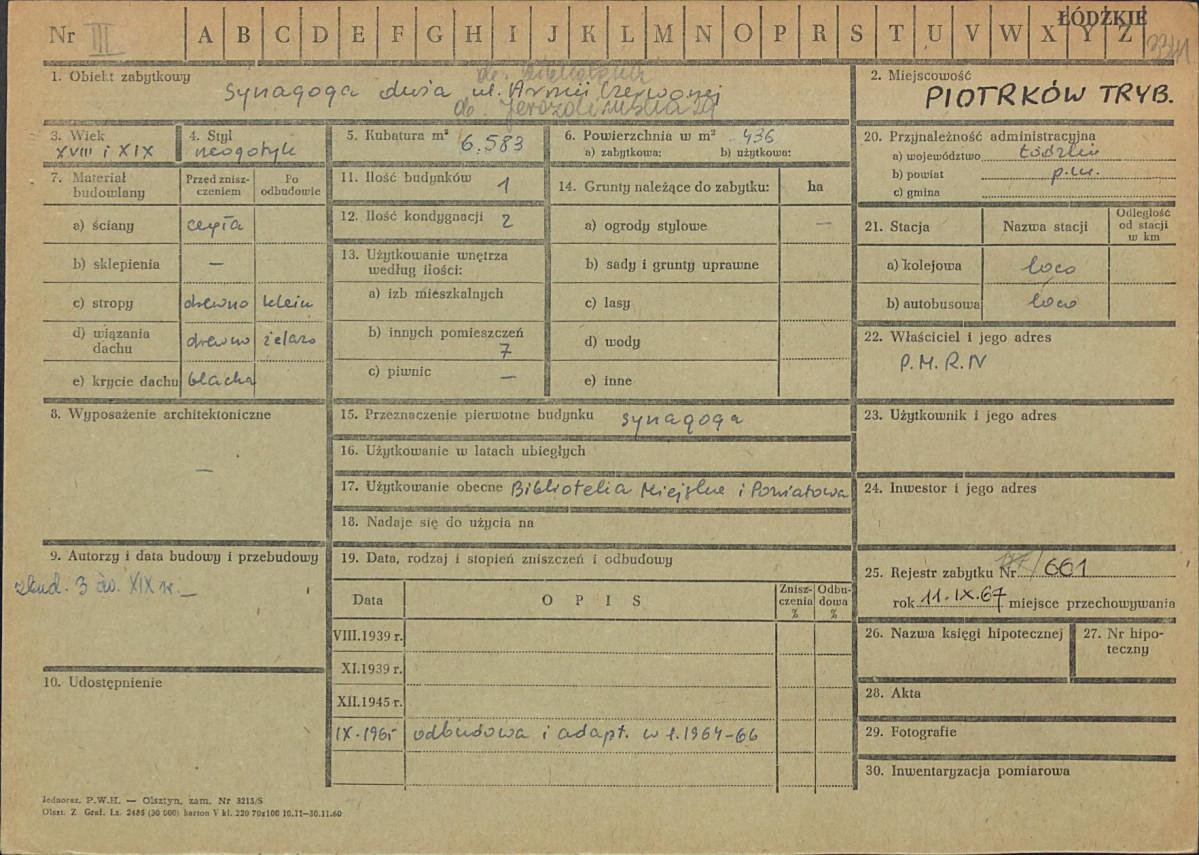 ŁÓDZKIE
Nr III A B C D E F G H I J K L M N O P R S T U V W X Y Z
1. Obiekt zabytkowy
Synagoga duża ul. Armii Czerwonej
ob. Jerozolimska 29
2. Miejscowość
PIOTRKÓW TRYB.
3. Wiek
XVIII i XIX
4. Styl
neogotyk
5. Kubatura m³ 6.583
6. Powierzchnia w m² 436
a) zabytkowa: b) użytkowa:
7. Materiał budowlany
Przed zniszczeniem
Po odbudowie
a) ściany cegła
b) sklepienia —
c) stropy drewno klein
d) wiązania dachu drewno żelazo
e) krycie dachu blacha
8. Wyposażenie architektoniczne
—
9. Autorzy i data budowy i przebudowy
zbud. 3 ćw. XIX w. —
10. Udostępnienie
11. Ilość budynków 1
12. Ilość kondygnacji 2
13. Użytkowanie wnętrza
według ilości:
a) izb mieszkalnych
b) innych pomieszczeń
7
c) piwnic —
14. Grunty należące do zabytku: ha
a) ogrody stylowe —
b) sady i grunty uprawne
c) lasy
d) wody
e) inne
15. Przeznaczenie pierwotne budynku synagoga
16. Użytkowanie w latach ubiegłych
17. Użytkowanie obecne Biblioteka Miejska i Powiatowa
18. Nadaje się do użycia na
19. Data, rodzaj i stopień zniszczeń i odbudowy
Data OPIS Zniszczenia % Odbudowa %
VIII.1939 r.
XI.1939 r.
XII.1945 r.
IX.1965 odbudowa i adapt. w l. 1964-66
20. Przynależność administracyjna
a) województwo łódzkie
b) powiat p.w.
c) gmina
21. Stacja Nazwa stacji Odległość od stacji w km
a) kolejowa loco
b) autobusowa loco
22. Właściciel i jego adres
P.M.R.N
23. Użytkownik i jego adres
24. Inwestor i jego adres
25. Rejestr zabytku Nr /661
rok 11.IX.67 miejsce przechowywania
26. Nazwa księgi hipotecznej
27. Nr hipoteczny
28. Akta
29. Fotografie
30. Inwentaryzacja pomiarowa
Jednoraz. P.W.H. — Olsztyn, zam. Nr 3213/S
Olszt. Z. Graf. Lz. 2485 (30 000) karton V kl. 220 70x100 10.11—30.11.60